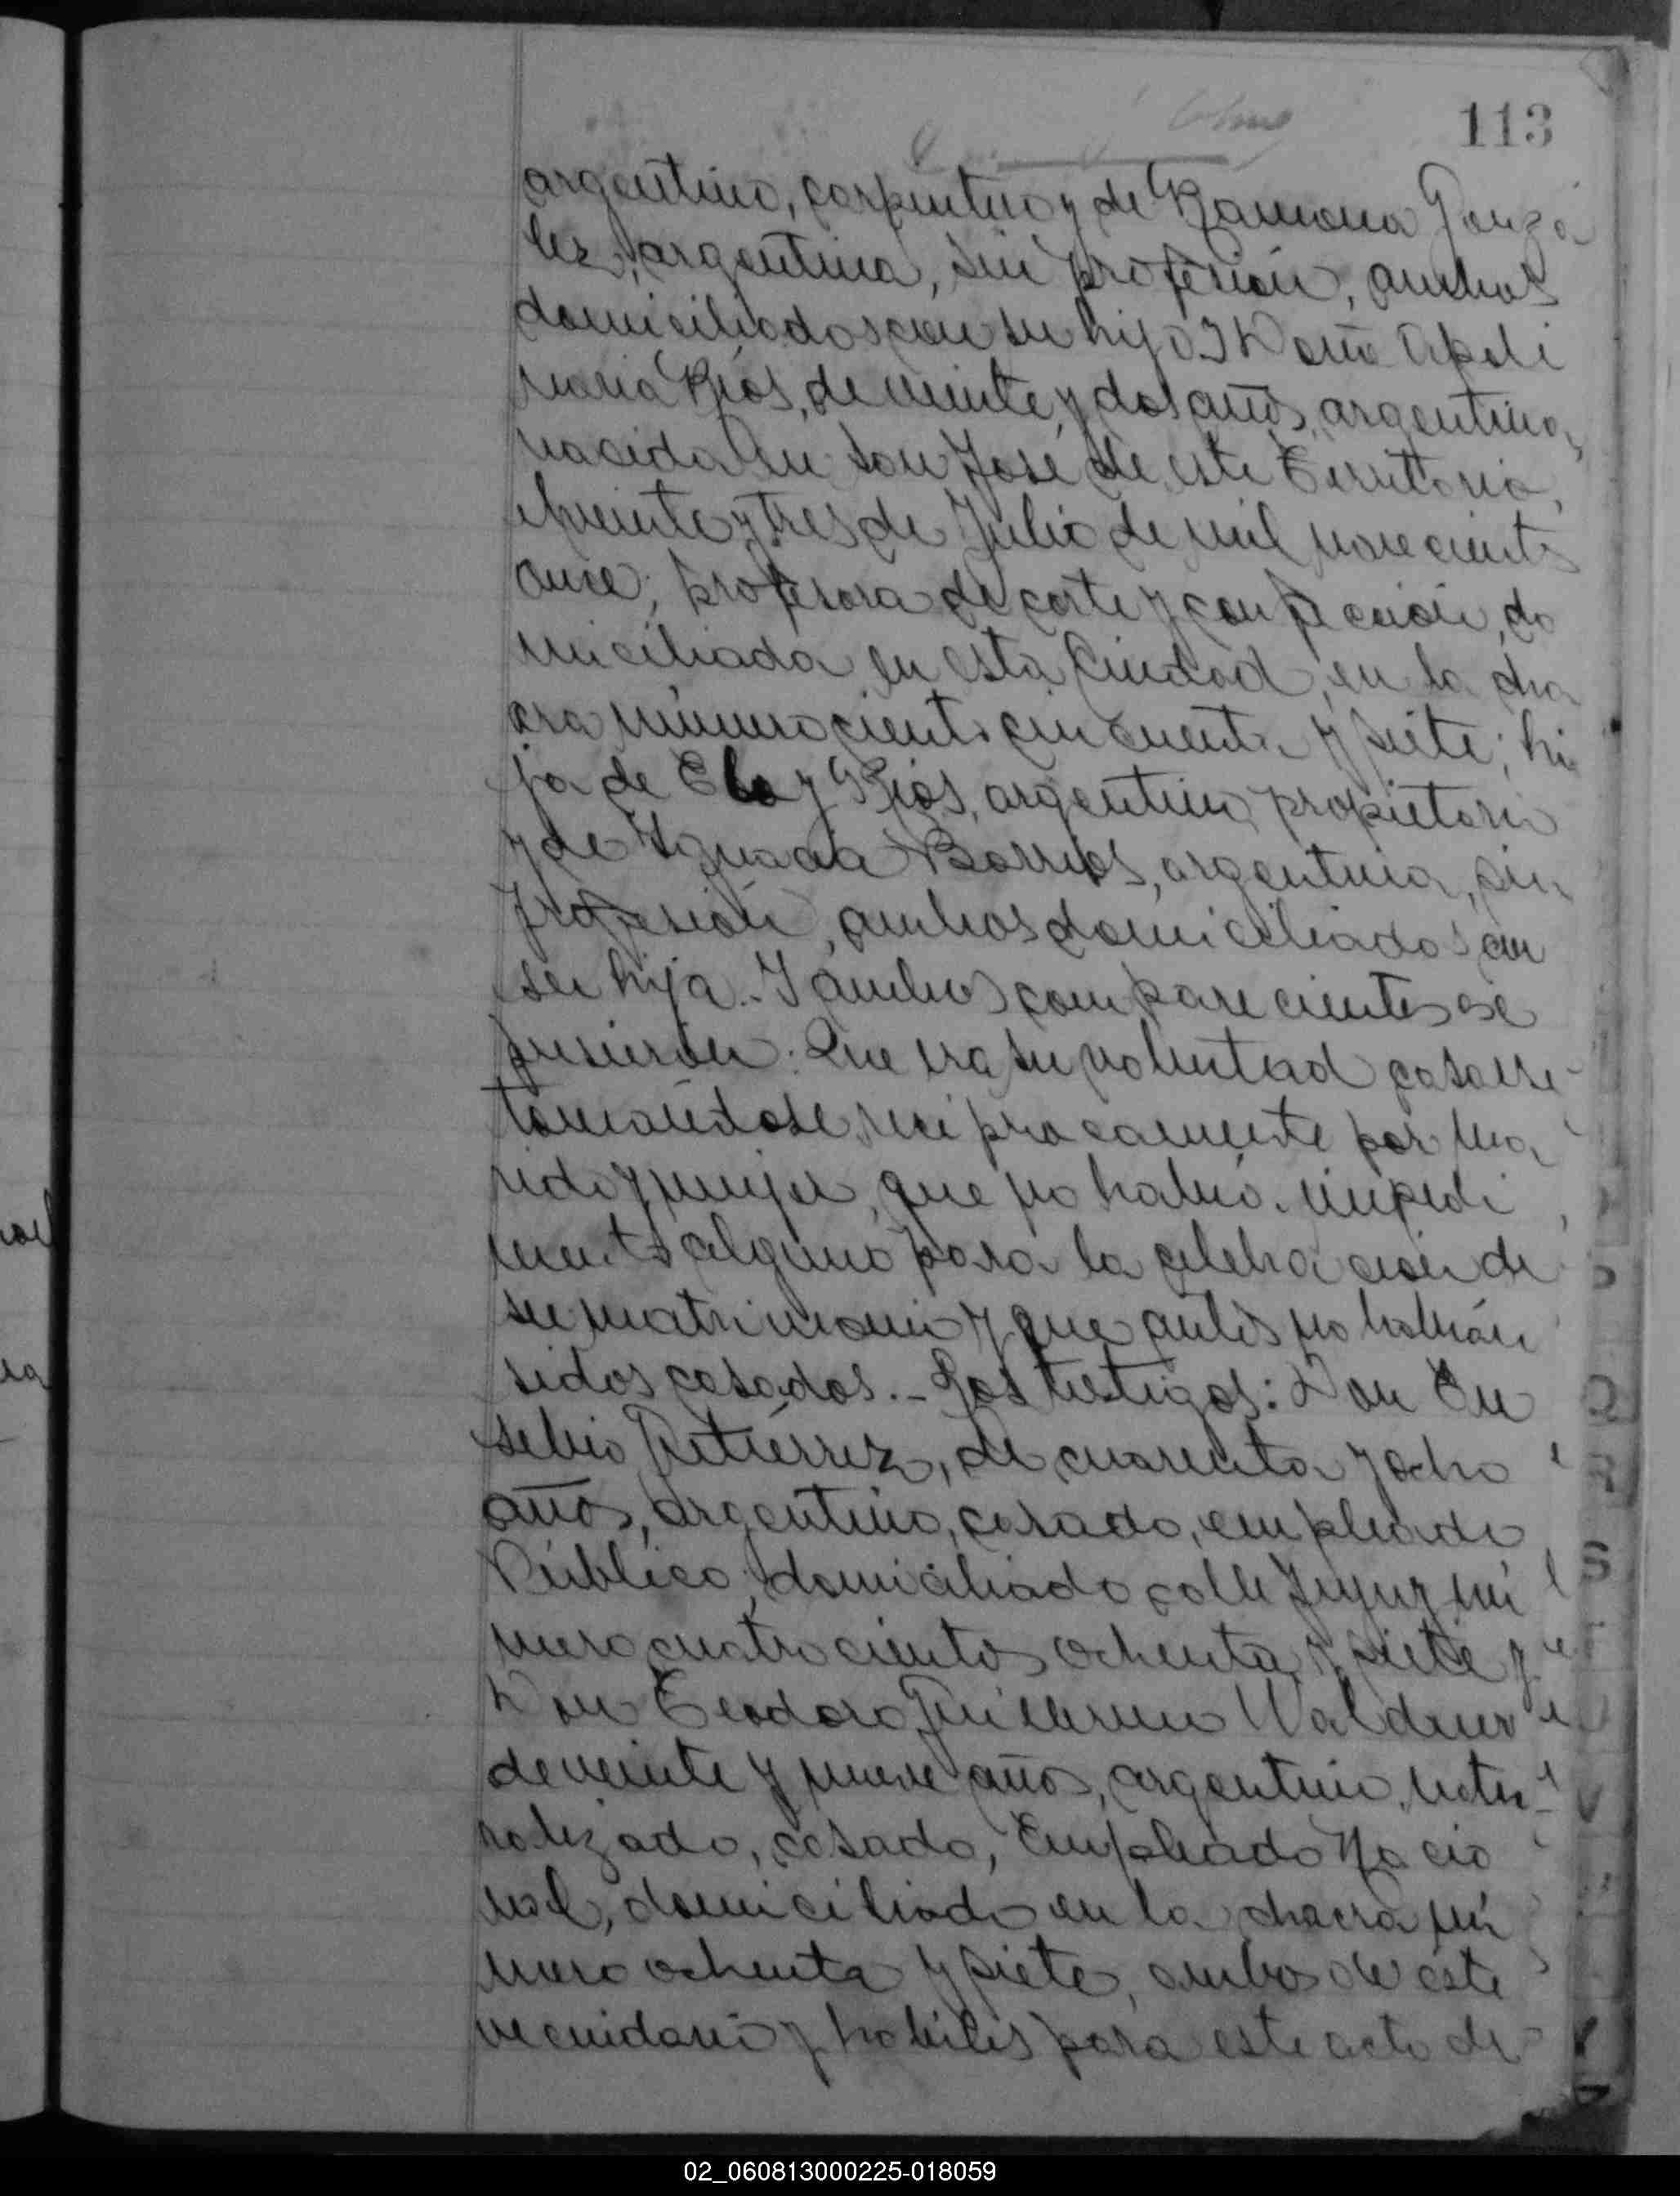 113
argentino, carpintero y de Ramona Gonzá
lez, argentina, sin profesión, ambos
domiciliados con su hijo. I Doña Apoli
naria Ríos, de veinte y dos años, argentina,
nacida en San José de este Territorio,
el veinte y tres de Julio de mil novecientos
once; profesora de corte y confección, do
miciliada en esta Ciudad, en la cha
cra número ciento cincuenta y siete; hi
ja de Eloy Ríos, argentino, propietario
y de Ignacia Barrios, argentina, sin
profesión, ambos domiciliados con
su hija.- I ambos comparecientes ex
pusieron: Que era su voluntad casarse
tomándose recíprocamente por ma
rido y mujer, que no había impedi
mento alguno para la celebración de
su matrimonio y que antes no habían
sidos casados.- Los testigos: Don Eu
sebio Gutiérrez, de cuarenta y ocho
años, argentino, casado, empleado
Público, domiciliado calle Jujuy nú
mero cuatrocientos ochenta y siete y
Don Teodoro Guillermo Waldner
de veinte y nueve años, argentino, natu
ralizado, casado, Empleado Nacio
nal, domiciliado en la chacra nú
mero ochenta y siete, ambos de éste
vecindario y hábiles para este acto de
02_060813000225-018059